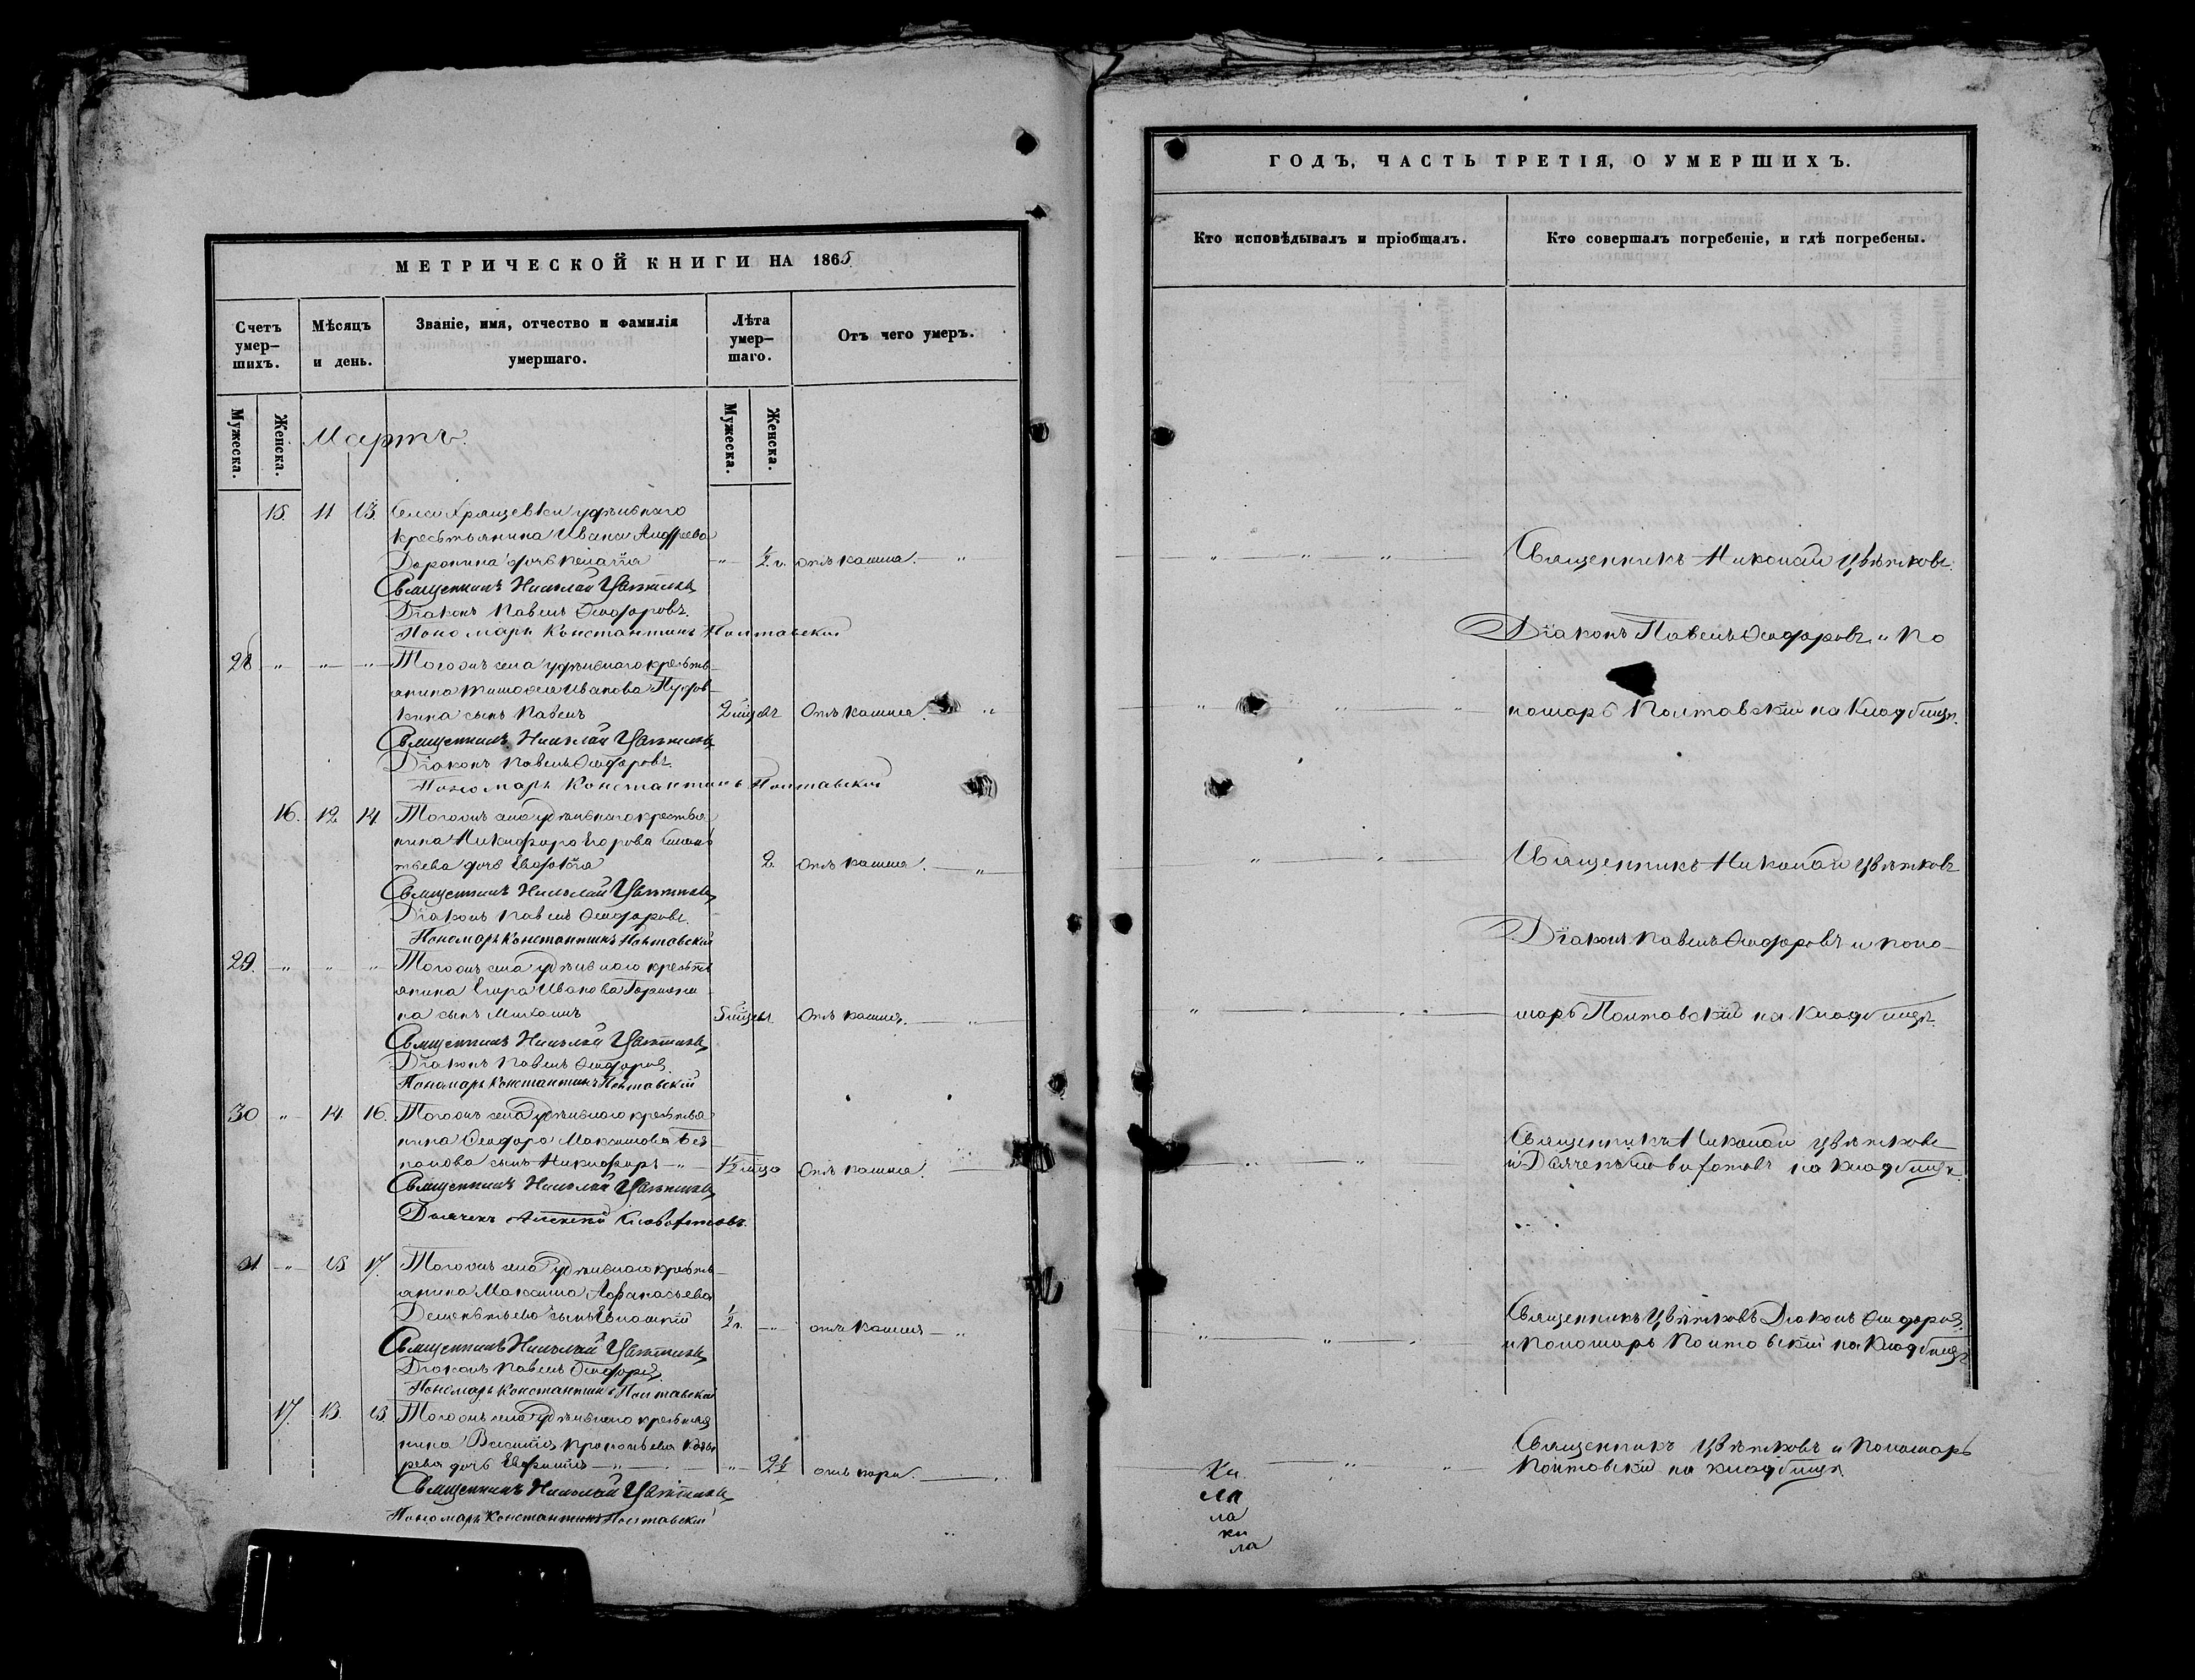 МЕТРИЧЕСКОЙ КНИГИ НА 1865
Счетъ умер–шихъ.
Мѣсяцъ и день.
Званіе, имя, отчество и фамилія умершаго.
Лѣта умер–шаго.
Отъ чего умеръ.
Мужеска.
Женска.
Мужеска.
Женска.
Мартъ.
15. 11 13. Села Хрящевки удѣльнаго
крестьянина Ивана Андреева
Доронина дочь Пелагія " ½ г. отъ кашля. "
Священникъ Николай Цвѣтковъ
Діаконъ Павелъ Ѳеодоровъ.
Пономарь Константинъ Полтавскій
28 " " " Тогожъ села удѣльнаго крестья–
янина Тимоѳея Иванова
кина сынъ Павелъ 2 мѣсц. Отъ кашля. "
Священникъ Николай Цвѣтковъ
Діаконъ Павелъ Ѳеодоровъ.
Пономарь Константинъ Полтавскій
16. 12 14 Тогожъ села удѣльнаго крестья
нина Никифора Егорова
тьева дочь Евдокія 2 отъ кашля. "
Священникъ Николай Цвѣтковъ
Діаконъ Павелъ Ѳеодоровъ.
Пономарь Константинъ Полтавскій
29. " " " Тогожъ села удѣльнаго крестья
янина Егора Иванова
на сынъ Михаилъ 5 мѣсцы Отъ кашля. "
Священникъ Николай Цвѣтковъ
Діаконъ Павелъ Ѳеодоровъ
Пономарь Константинъ Полтавскій
30 " 14 16. Тогожъ села удѣльнаго крестья
нина Ѳеодора Максимова
сынъ Никифоръ " Отъ кашля.
Священникъ Николай Цвѣтковъ
Дьячекъ Алексей
31 " 15 17. Тогожъ села удѣльнаго крестья–
янина Максима Афанасьева
Дементьева сынъ ½ г. " отъ кашля "
Священникъ Николай Цвѣтковъ
Діаконъ Павелъ Ѳеодоровъ
Пономарь Константинъ Полтавскій
17. 13. 15. Тогожъ села удѣльнаго крестья
нина Василія Прокопьева
дочь " " 2½ отъ кори.
Священникъ Николай Цвѣтковъ
Пономарь Константинъ Полтавскій
ГОДЪ, ЧАСТЬ ТРЕТІЯ, О УМЕРШИХЪ.
Кто исповѣдывалъ и пріобщалъ.
Кто совершалъ погребеніе, и гдѣ погребены.
" " " Священникъ Николай Цвѣтковъ.
Діаконъ Павелъ Ѳеодоровъ и По
" " " номарь Полтавскій на кладбищѣ.
" " Священникъ Николай Цвѣтковъ
Діаконъ Павелъ Ѳеодоровъ и поно–
" " " марь Полтавскій на кладбищѣ.
Священникъ Николай Цвѣтковъ
" " и Дьячекъ на кладбищѣ.
Священникъ Цвѣтковъ Діаконъ Ѳеодоровъ
" " " и Пономарь Полтавскій на кладбищѣ
Священникъ Цвѣтковъ и Пономарь
" " Полтавскій на кладбищѣ
ла
ки
ла